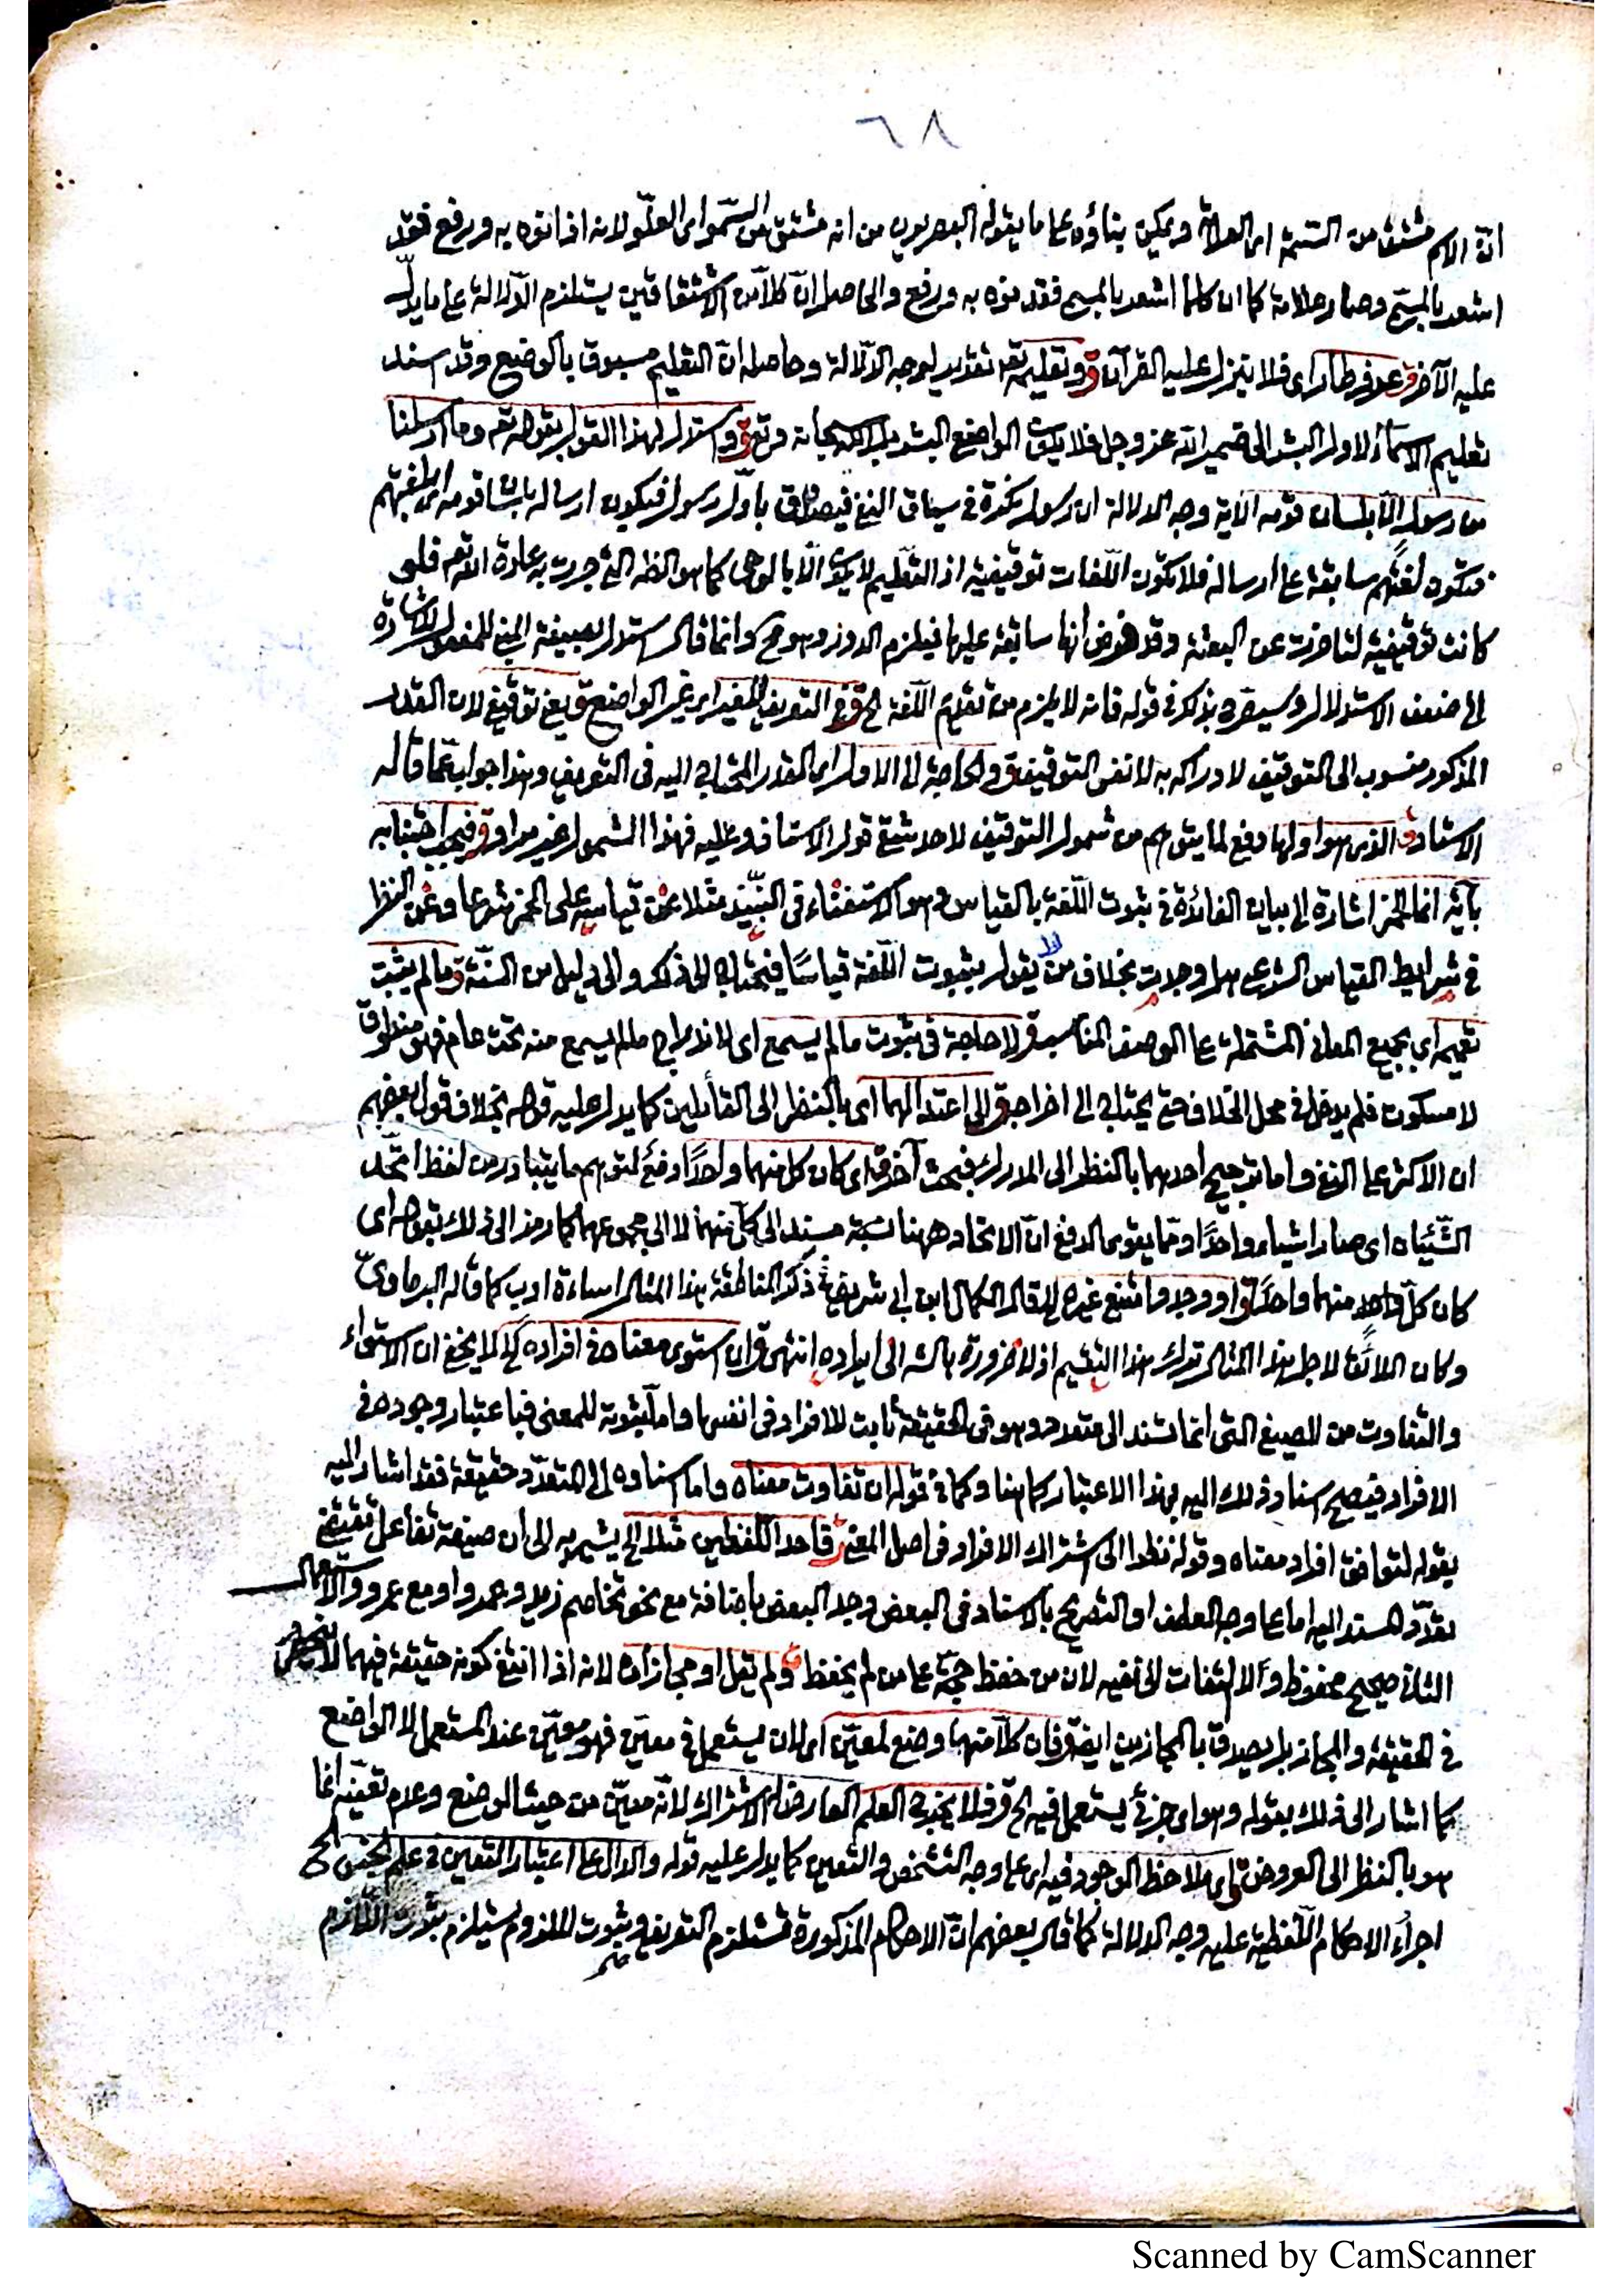 ٦٨
انّ الاسم مشتق من السّمة اى العلامة ويمكن بناؤه على ما يقوله البصريون من انه مشتق من السّمو اى العلوّ لانه اذا نوه به ورفع فقد
اشعر بالمسمّى وصار علامة كما ان كلما اشعر بالمسمى فقد نوه به ورفع والحاصل انّ كلاّ من الاشتقاقين يستلزم الدّلالة على ما يدلّ
عليه الآخر ق اى فلا يتنزل عليه القرآن ق وتعليمه تع تقدير لوجه الدّلالة وحاصله انّ التعليم مسبوق بالوضع وقد اسند
تعليم الاسماء لاول البشر الى ضمير الله عز وجل فلا يكون الواضع البشر بل الله سبحانه وتع ق واستدل لهذا القول بقوله تع وما ارسلنا
من رسول الاّ بلسان قومه الآية وجه الدلالة ان رسول نكرة فى سياق النفى فيصدق باوّل رسول فيكون ارساله بلسان قومه اى بلغتهم
فتكون لغتهم سابقة على ارساله فلا تكون اللّغات توقيفية اذ التعليم لا يكون الاّ بالوحى كما هو الظه التى جرت به عادة الله تع فلو
كانت توقيفية لتاخرت عن البعثة وقد فرض انها سابقة عليها فيلزم الدور وهو مح وانما قال استدل بصيغة المبنى للمفعول للاشارة
الى ضعف الاستدلال وسيصرح بذكر فى قوله فانه لا يلزم من تقديم اللّغة الخ ق فى التعريف للغير اى غير الواضع ق يعنى توقيفى لان القدر
المذكور منسوب الى التوقيف لادراكه به لا نفس التوقيف ق والحاجة الى الاول اى القدر المحتاج اليه فى التعريف وهذا جواب عمّا قاله
الاستاد ق الذى هو اولها دفع لما يتوهم من شمول التوقيف لاحد شقى قول الاستاذ وعليه فهذا الشمول غير مراد ق فيجب اجتنابه
بآية انما الخمر اشارة الى بيان الفائدة فى ثبوت اللّغة بالقياس وهو الاستغناء فى النّبيذ مثلا عن قياسه على الخمر شرعا وعن النظر
فى شرايط القياس الشرعى هل وجدت بخلاف من لا يقول بثبوت اللّغة قياسًا فيحتاج الى ذلك والى دليل من السنّة ق وما لم يثبت
تعميمه اى بجميع المعانى المشتملة على الوصف المناسب ق لا حاجة فى ثبوت ما لم يسمع اى لاندراج ما لم يسمع منه تحت عام فهو منطوق
لا مسكوت فلم يدخل فى محل الخلاف حتى يحتاج الى اخراجه ق الى اعتدالهما اى بالنظر الى القائلين كما يدل عليه قوله بخلاف قول بعضهم
ان الاكثر على النفى واما ترجيح احدهما بالنظر الى المدرك فبحث آخر ق اى كان كل منهما واحدًا دفع لتوهم ما يتبادر من لفظ اتّحد
الشّيئان اى صارا شيئا واحدًا ومّما يقوى الدفع انّ الاتحاد ههنا نسبة مسند الى كلّ منهما لا الى مجموعهما كما رمز الى ذلك بقوله اى
كان كلّ واحد منهما واحدًا ق او وجد وامتنع غيره الخ قال الكمال ابن ابى شريف فى ذكر المناطقة بهذا المثال اساءة ادب كما قاله البرماوىّ
وكان اللائق لاجل هذا المثال ترك هذا التقسيم اذ لا ضرورة بالشه الى ايراده انتهى ق ان استوى معناه فى افراده الخ لا يخفى ان الاستواء
والتفاوت من الصيغ التى انما تسند الى متعدد وهو فى الحقيقة ثابت للافراد فى انفسها واما ثبوته للمعنى فباعتبار وجوده فى
الافراد فيصح اسناد ذلك اليه بهذا الاعتبار كما هنا وكما فى قوله ان تفاوت معناه واما اسناده الى المتعدّد حقيقة فقد اشار اليه
بقوله لتوافق افراد معناه وقوله نظرا الى اشتراك الافراد فى اصل المعنى ق احد اللّفظين مثلا الخ يشير به الى ان صيغة تفاعل تقتضى
تعدّد المسند اليه اما على وجه العطف او التصريح بالاسناد فى البعض وجر البعض باضافة مع نحو تخاصم زيد وعمرو او مع عمرو والاستعمال
الثانى صحيح محفوظ ولا التفات الى نفيه لان من حفظ حجّة على من لم يحفظ ق ولم يقل او مجازان لانه اذا انتفى كونه حقيقة فيهما لا ينحصر
فى الحقيقة والمجاز بل يصدق بالمجازين ايضا ق فان كلاّ منهما وضع لمعيّن اى لان يستعمل فى معيّن فهو معيّن عند المستعمل لا الواضع
كما اشار الى ذلك بقوله وهو اى جزئى يستعمل فيه الخ ق فلا يخرج العلم العارض الاشتراك لانّه معيّن من حيث الوضع وعدم تعيّنه انما
هو بالنظر الى العروض ق اى ملاحظ الوجود فيه اى على وجه التشخص والتعيين كما يدل عليه قوله والدال على اعتبار التعيين فى علم الجنس الخ
اجراء الاحكام اللّفظية عليه وجه الدلالة كما قال بعضهم انّ الاحكام المذكورة تستلزم التعريف وثبوت الملزوم يستلزم ثبوت اللازم
Scanned by CamScanner